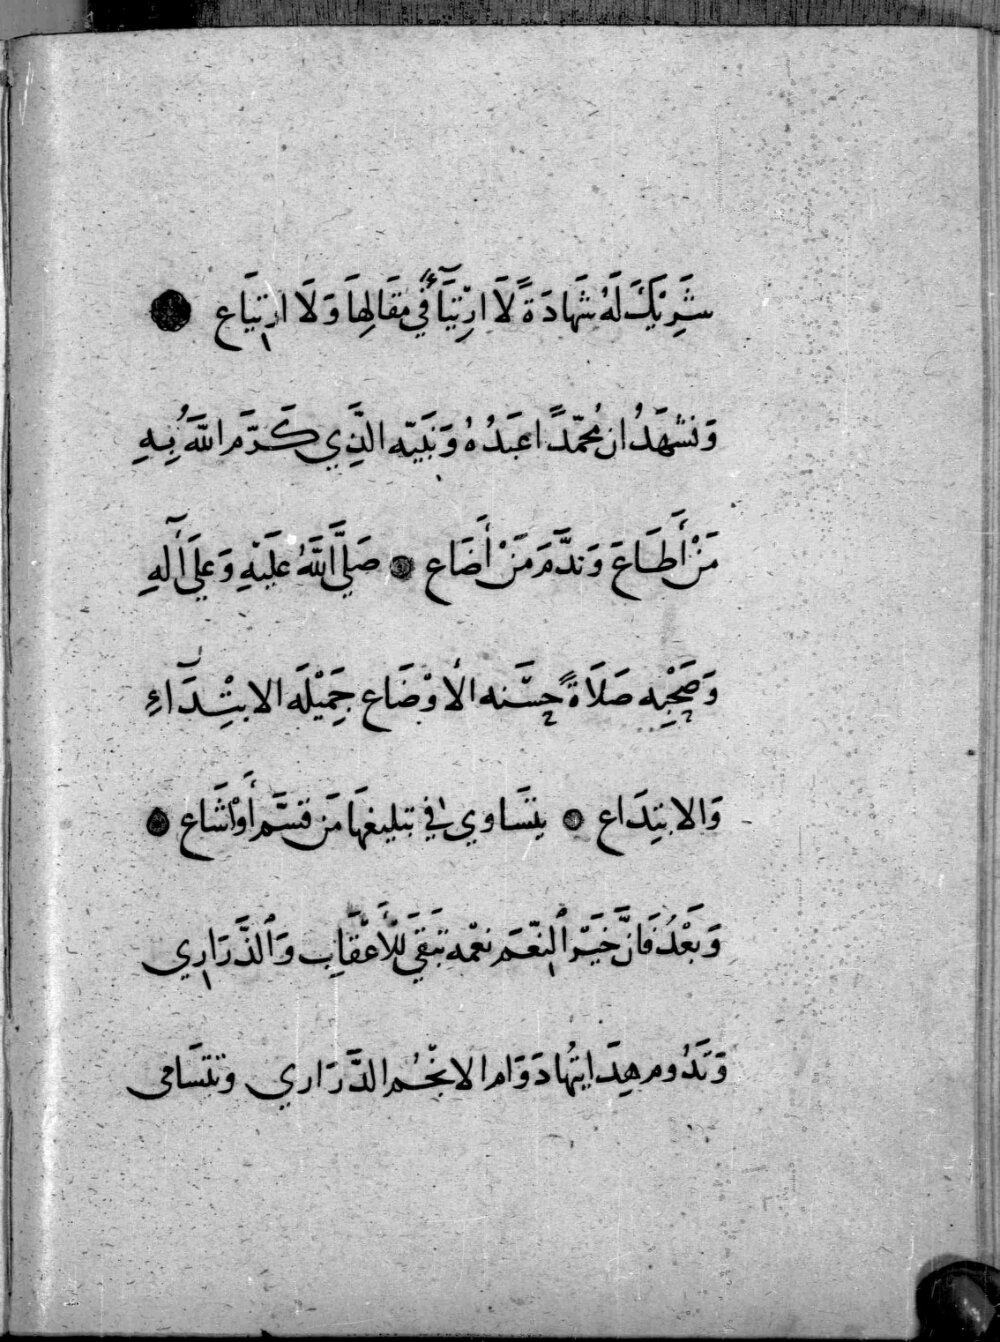 شَرِيْكَ لَهُ شَهَادَةً لَا ارْتِيَآءً فِي مَقَالِهَا وَلَا ارتِيَاع
وَنَشْهَدُ ان مُحَمّدًا عَبدُهُ وَنَبيّه الذَِّي كَرَّمَ اللَّهُ بِهِ
مَنْ أَطَاعَ وَنَدَّمَ مَنْ أَضَاع صَلَّى اللَّهُ عَلَيْهِ وَعَلَى آلِهِ
وَصَحْبِه صَلَاةً حسَنه الأوْضَاع جَمِيْلَه الابْتِدَآءِ
وَالابتِدَاع يتَسَاوي فِي تبليغهَا مَن قسَّم أَوْ اشَاع
وَبَعْدُ فَانَّ خَيْرَ النّعَم نعْمه تَبقَى لِلْأَعْقَابِ وَالذَّرَارِي
وَتَدُوم هِدَايتُهَا دَوَام الانْجُم الدَّرَاري وتتسَامى